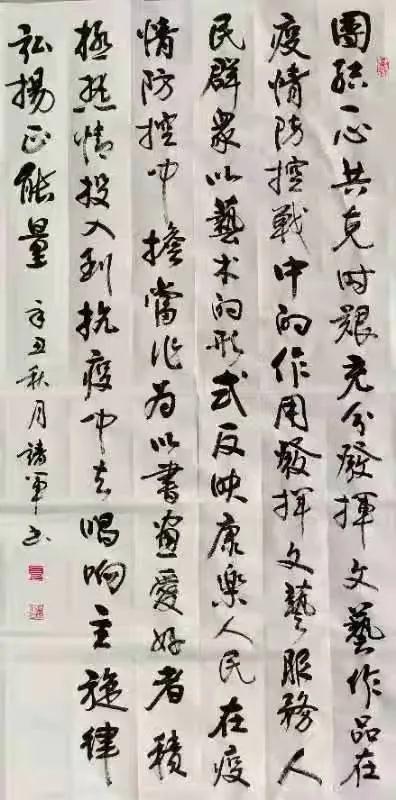 團结一心共克时艱充分發揮文藝作品在
疫情防控戰中的作用發揮文藝服務人
民群衆以藝术的形式反映康樂人民在疫
情防控中擔當作为以書画愛好者積
極熱情投入到抗疫中去唱响主旋律
弘揚正能量 辛丑秋月 諸軍书